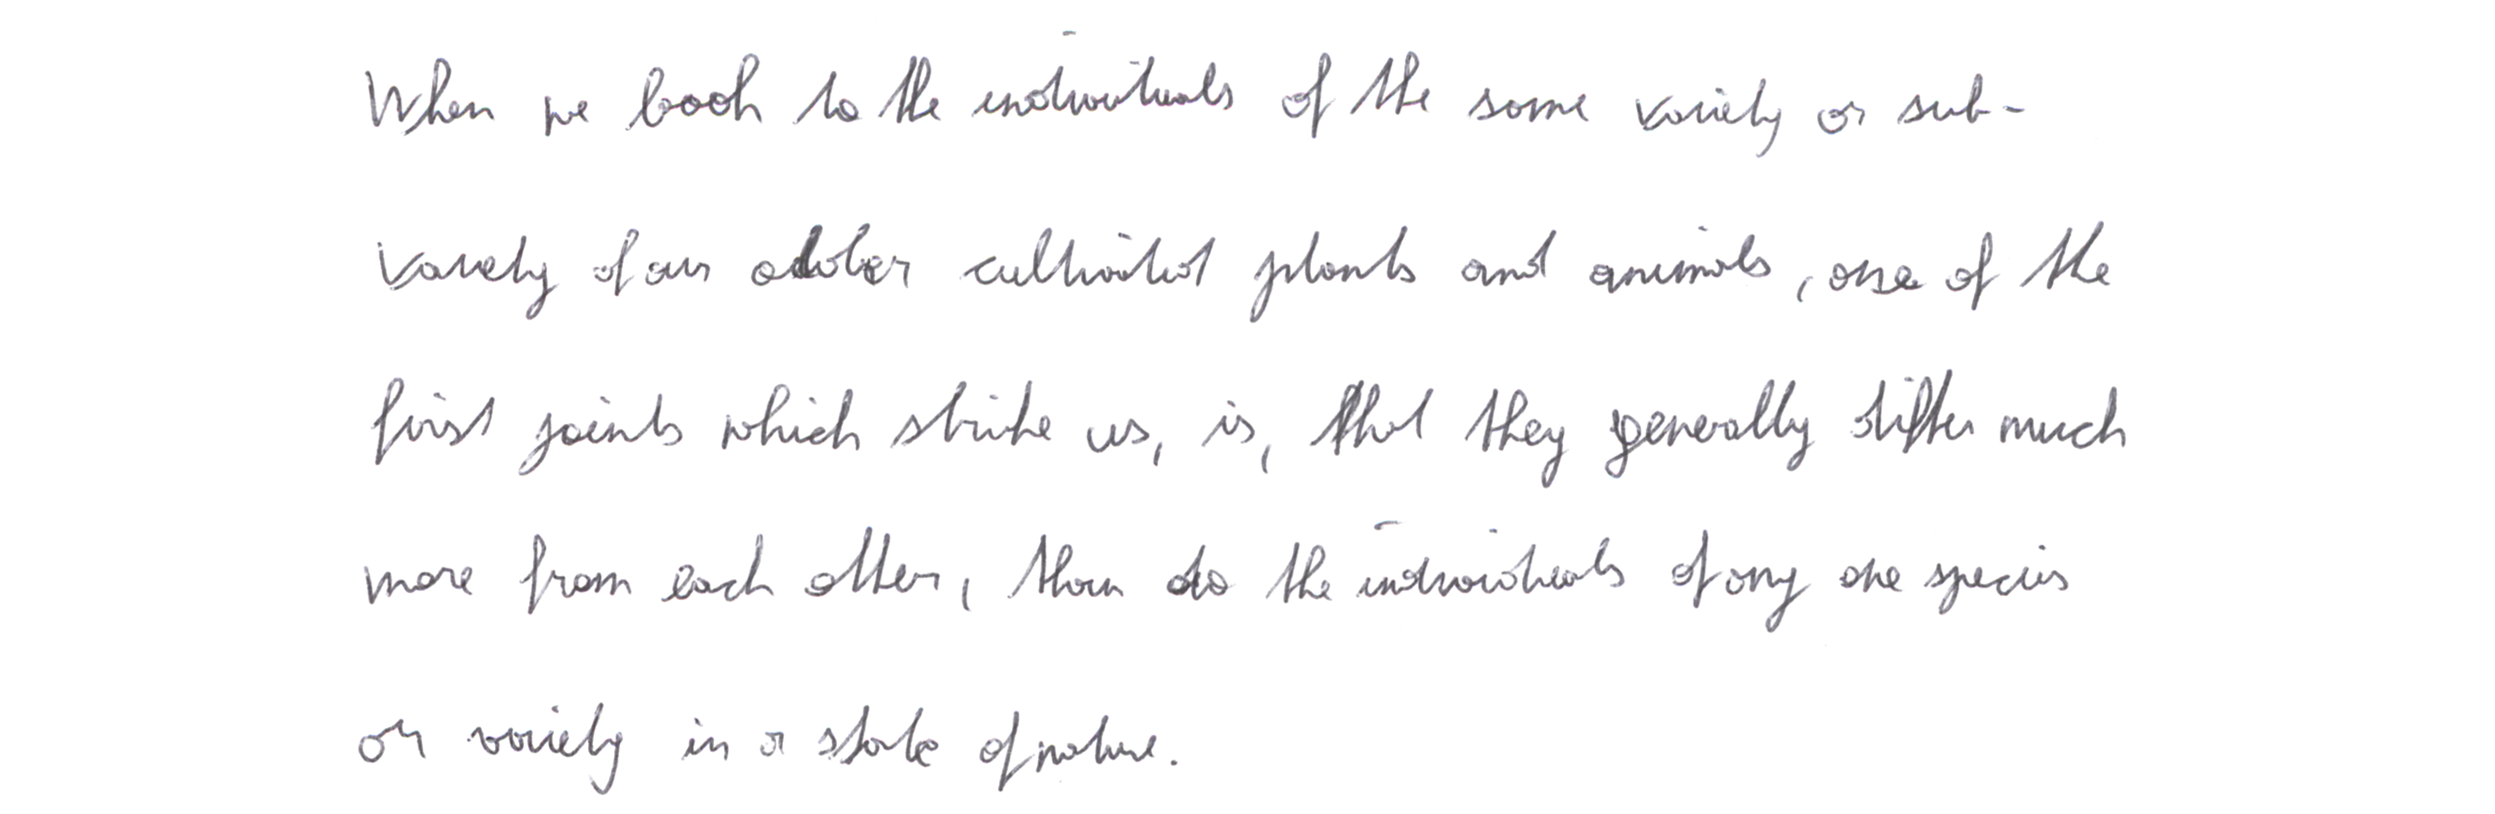 When we look to the individuals of the same variety or sub-
variety of our older cultivated plants and animals, one of the
first points which strike us, is, that they generally differ much
more from each other, than do the individuals of any one species
or variety in a state of nature.